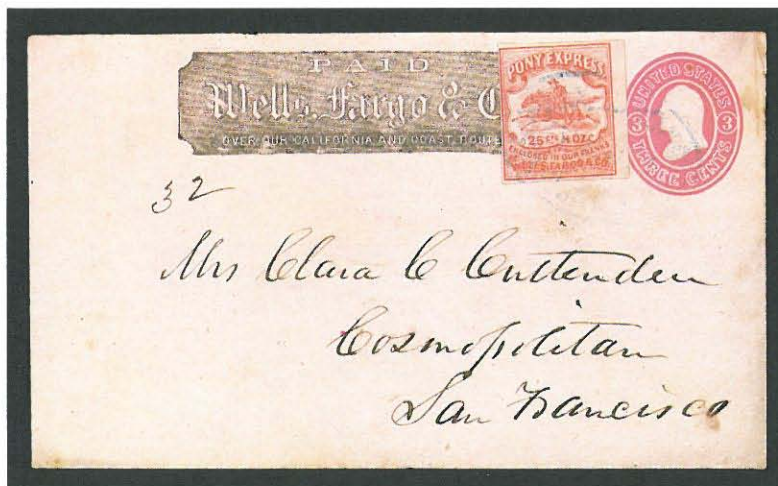 PAID
Wells, Fargo & C
OVER OUR CALIFORNIA AND COAST ROUTE
PONY EXPRESS
25 Cts ½ OZ.
ENCLOSED IN OUR FRANKS
WELLS, FARGO & CO.
UNITED STATES
3 3
THREE CENTS
32
Mrs Clara C Cuttenden
Cosmopolitan
San Francisco